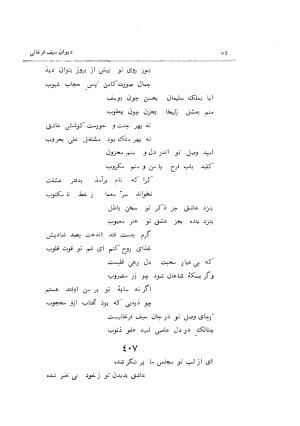 ۷٤ دیوان سیف فرغانی
بنور روی تو پیش از بروز بتوان دید
جمال صورت کامن پس حجاب غیوب
ایا بملک سلیمان بحسن چون یوسف
منم بعشق زلیخا بحزن چون یعقوب
نه بهر جنت و حورست کوشش عاشق
نه بهر ملک بود مشتغل علی بحروب
امید وصل تو اندر دل و منم محزون
کلید باب فرح با من و منم مکروب
کرا که نام برآمد بدفتر عشقت
نخواند سر معما ز خط نا مکتوب
بنزد عاشق جز ذکر تو سخن باطل
بنزد بنده بجز عشق تو هنر معیوب
گرم بدست فتد اندهت بصد شادیش
غذای روح کنم ای غم تو قوت قلوب
که بی عیار محبت دل رهی قلبست
وگر بسکهٔ شاهان شود چو زر مضروب
اگر نه سایهٔ تو بر من اوفتد هستم
چو ذره‌یی که بود آفتاب ازو محجوب
رجای وصل تو در جان سیف فرغانیست
چنانک در دل عاصی امید عفو ذنوب
٤۰۷
ای از لب تو مجلس ما پر شکر شده
عاشق بدیدن تو ز خود بی خبر شده